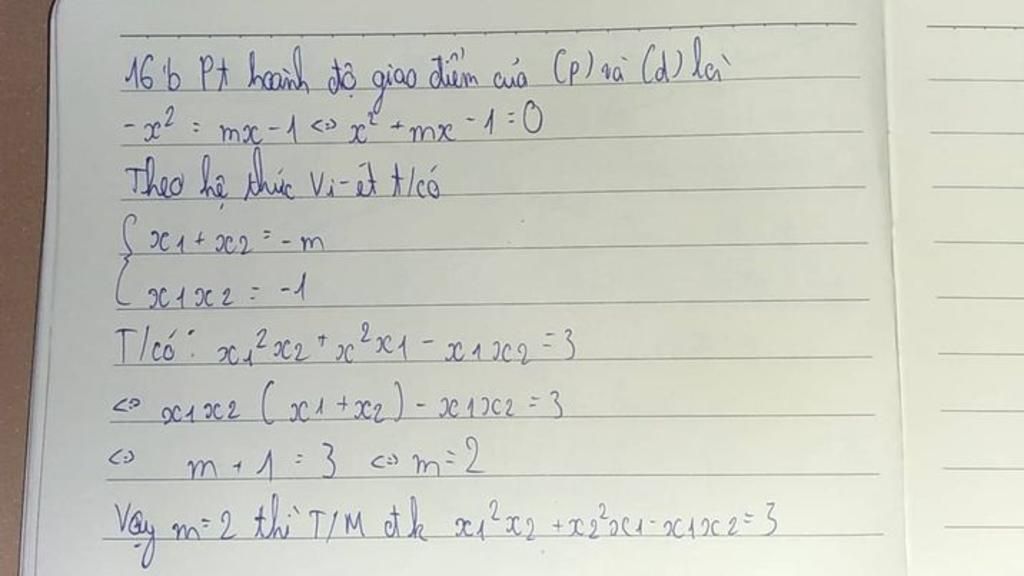 16b Pt hoành độ giao điểm của (p) và (d) là
-x² = mx - 1 <=> x² + mx - 1 = 0
Theo hệ thức Vi-ét t/có
{ x1 + x2 = -m
{ x1x2 = -1
T/có: x1²x2 + x²x1 - x1x2 = 3
<=> x1x2 (x1 + x2) - x1x2 = 3
<=> m + 1 = 3 <=> m = 2
Vậy m = 2 thì T/M đk x1²x2 + x2²x1 - x1x2 = 3